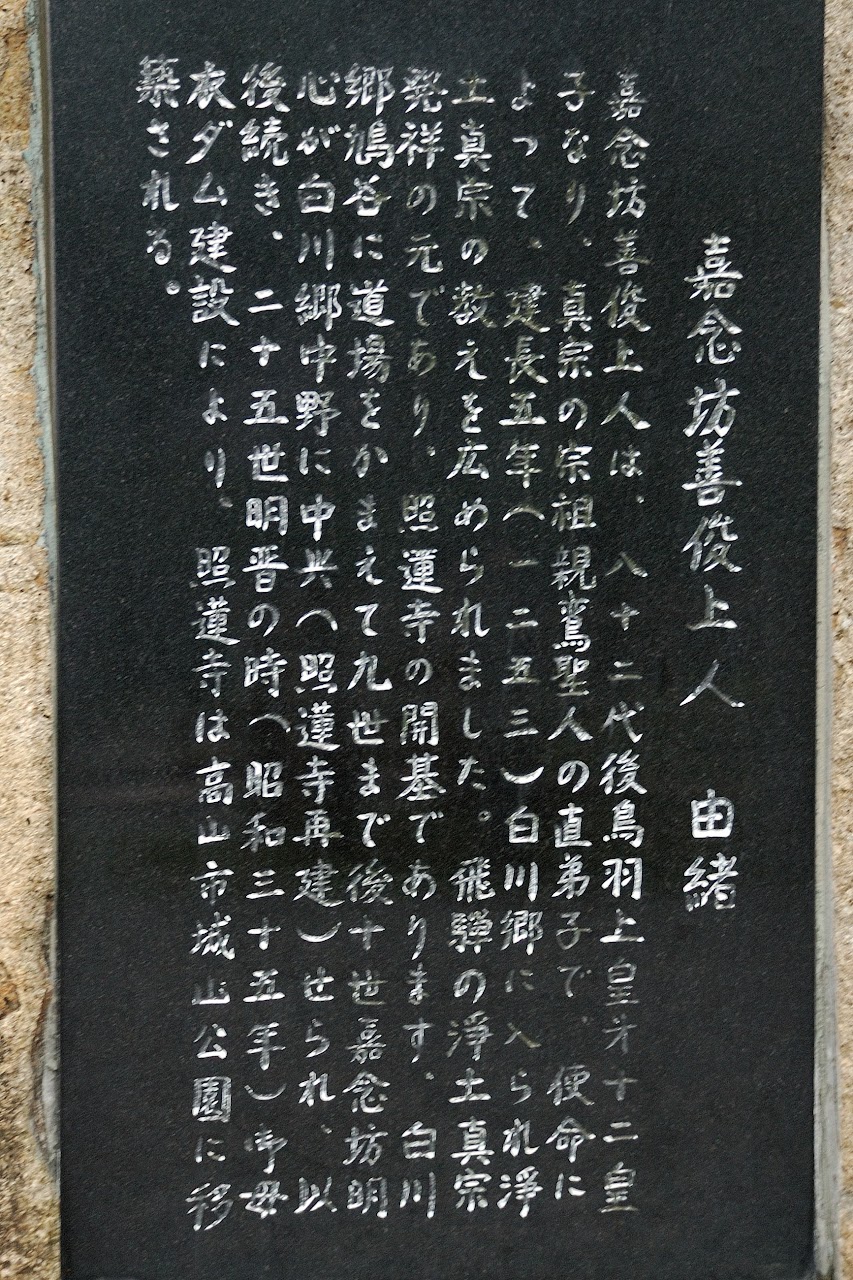 嘉念坊善俊上人　由緒
嘉念坊善俊上人は、八十二代後鳥羽上皇才十二皇
子なり、真宗の宗祖親鸞聖人の直弟子で、使命に
よって、建長五年(一二五三)白川郷に入られ淨
土真宗の教えを広められました。飛騨の淨土真宗
発祥の元であり、照蓮寺の開基であります、白川
郷鳩谷に道場をかまえて九世まで後十世嘉念坊明
心が白川郷中野に中興(照蓮寺再建)せられ、以
後続き、二十五世明晋の時(昭和三十五年)御母
衣ダム建設により、照蓮寺は高山市城山公園に移
築される。